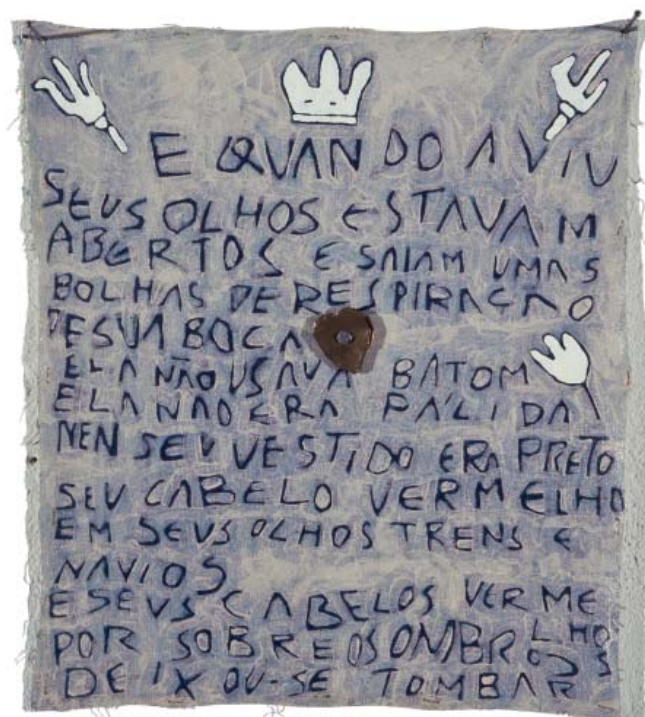 E QUANDO A VIU
SEUS OLHOS ESTAVAM
ABERTOS E SAIAM UMAS
BOLHAS DE RESPIRAÇÃO
DE SUA BOCA
ELA NÃO USAVA BATOM
ELA NAO ERA PÁLIDA
NEN SEU VESTIDO ERA PRETO
SEU CABELO VERMELHO
EM SEUS OLHOS TRENS E
NAVIOS
E SEUS CABELOS VERME
LHOS
POR SOBRE OS OMBROS
DEIXOU-SE TOMBAR